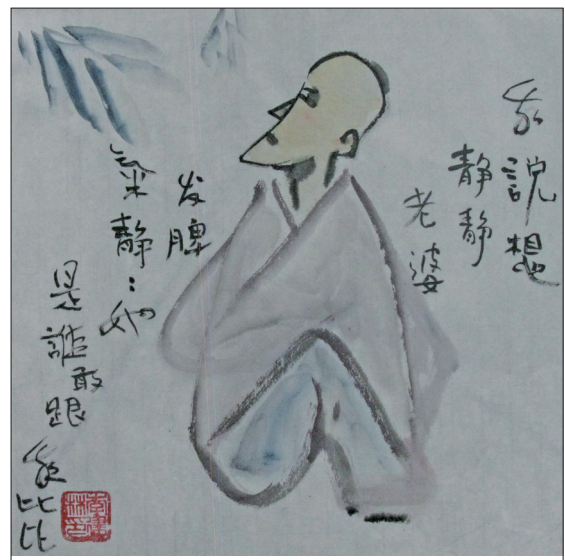 我說想
静静
老婆
发脾
氣靜：她
是誰敢跟
我比比